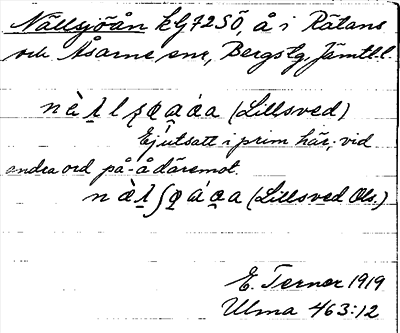 Nällsjöån kG72SÖ, å i Rätans
och Åsarne snr, Bergs tg, Jämtl. l.
(Lillsved)
Ej utsatt i prim här; vid
andra ord på -å däremot.
(Lillsved Ols.)
E. Terner 1919
Ulma 463:12